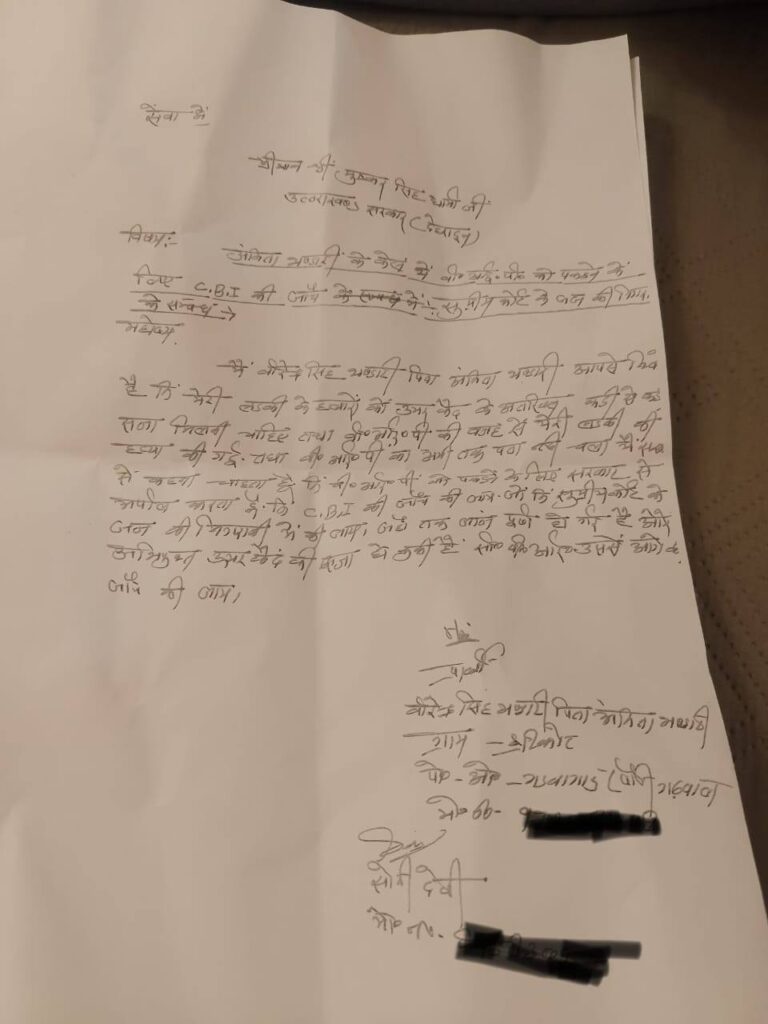 सेवा में
श्रीमान श्री पुष्कर सिंह धामी जी
उत्तराखण्ड सरकार (देहरादून)
विषय:- अंकिता भण्डारी के केस में वी० आई० पी० को पकडने के
लिए C.B.I की जाँच के सम्बंध में:- सुप्रीम कोर्ट के जज की निगर
के सम्बंध में →
महोदय,
मैं वीरेन्द्र सिंह भण्डारी पिता अंकिता भण्डारी आपसे
है कि मेरी लडकी के हत्यारों को उम्र कैद के अतिरिक्त कडी से कडी
सजा मिलनी चाहिए तथा वी० आई० पी की वजह से मेरी लडकी की
हत्या की गई. तथा वी० आई० पी का अभी तक पता नही चला मैं
से कहना चाहता हूँ कि वी० आई० पी० को पकडने के लिए सरकार से
अपील करता हूँ. कि C.B.I की जाँच की जाय. जो कि सुप्रीम कोर्ट के
जज की निगरानी में की जाय। जहाँ तक जाँच पूर्ण हो गई है और
अभियुक्त उम्र कैद की सजा हो चुकी है उससे आगे
जाँच की जाय।
प्रार्थी
वीरेन्द्र सिंह भण्डारी पिता अंकिता भण्डारी
ग्राम - श्रीकोट
पो० - ओ० - (पौडी गढ़वाल
मो० न०-
सोनी देवी
मो० न०-